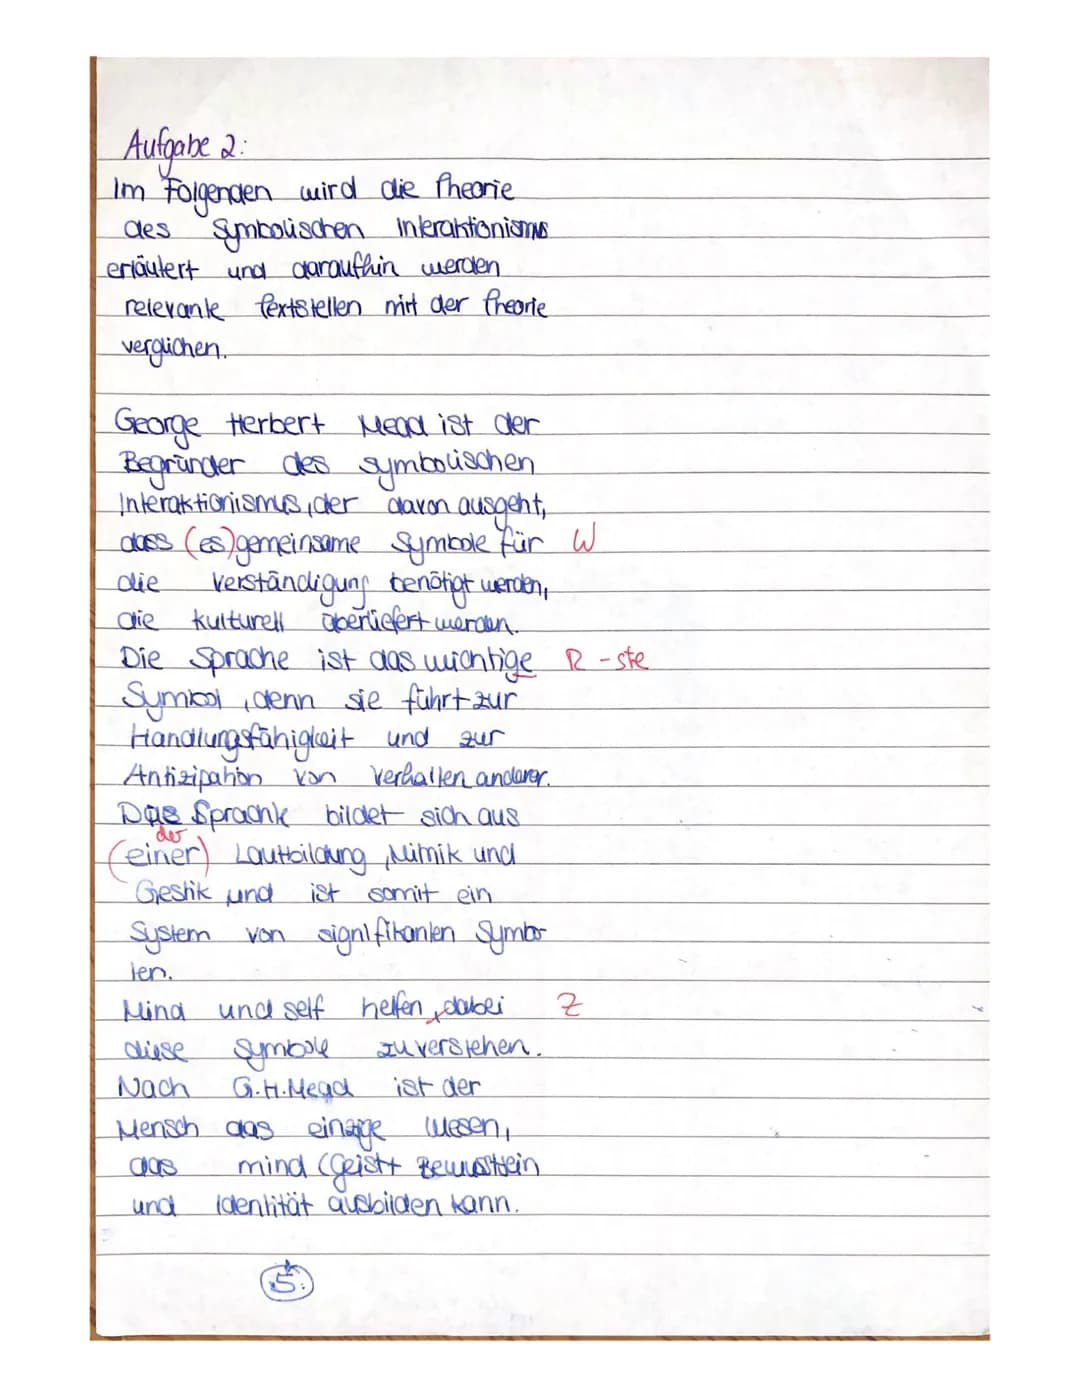 Aufgabe 2:
Im Folgenden wird die Theorie
des Symbolischen Interaktionismus
erläutert und daraufhin werden
relevante Textstellen mit der Theorie
verglichen.
George Herbert Mead ist der
Begründer des symbolischen
Interaktionismus, der davon ausgeht,
dass (es) gemeinsame Symbole für W
die Verständigung benötigt werden,
die kulturell überliefert werden.
Die Sprache ist das wichtige R -ste
Symbol, denn sie führt zur
Handlungsfähigkeit und zur
Antizipation von Verhalten anderer.
Sprache bildet sich aus
der
(einer) Lautbildung, Mimik und
Gestik und ist somit ein
System von signifikanten Symbo-
len.
Mind und self helfen, dabei Z
diese Symbole zu verstehen.
Nach G.H.Mead ist der
Mensch das einzige Wesen,
das mind (Geist+ Bewusstsein
und Identität ausbilden kann.
5.